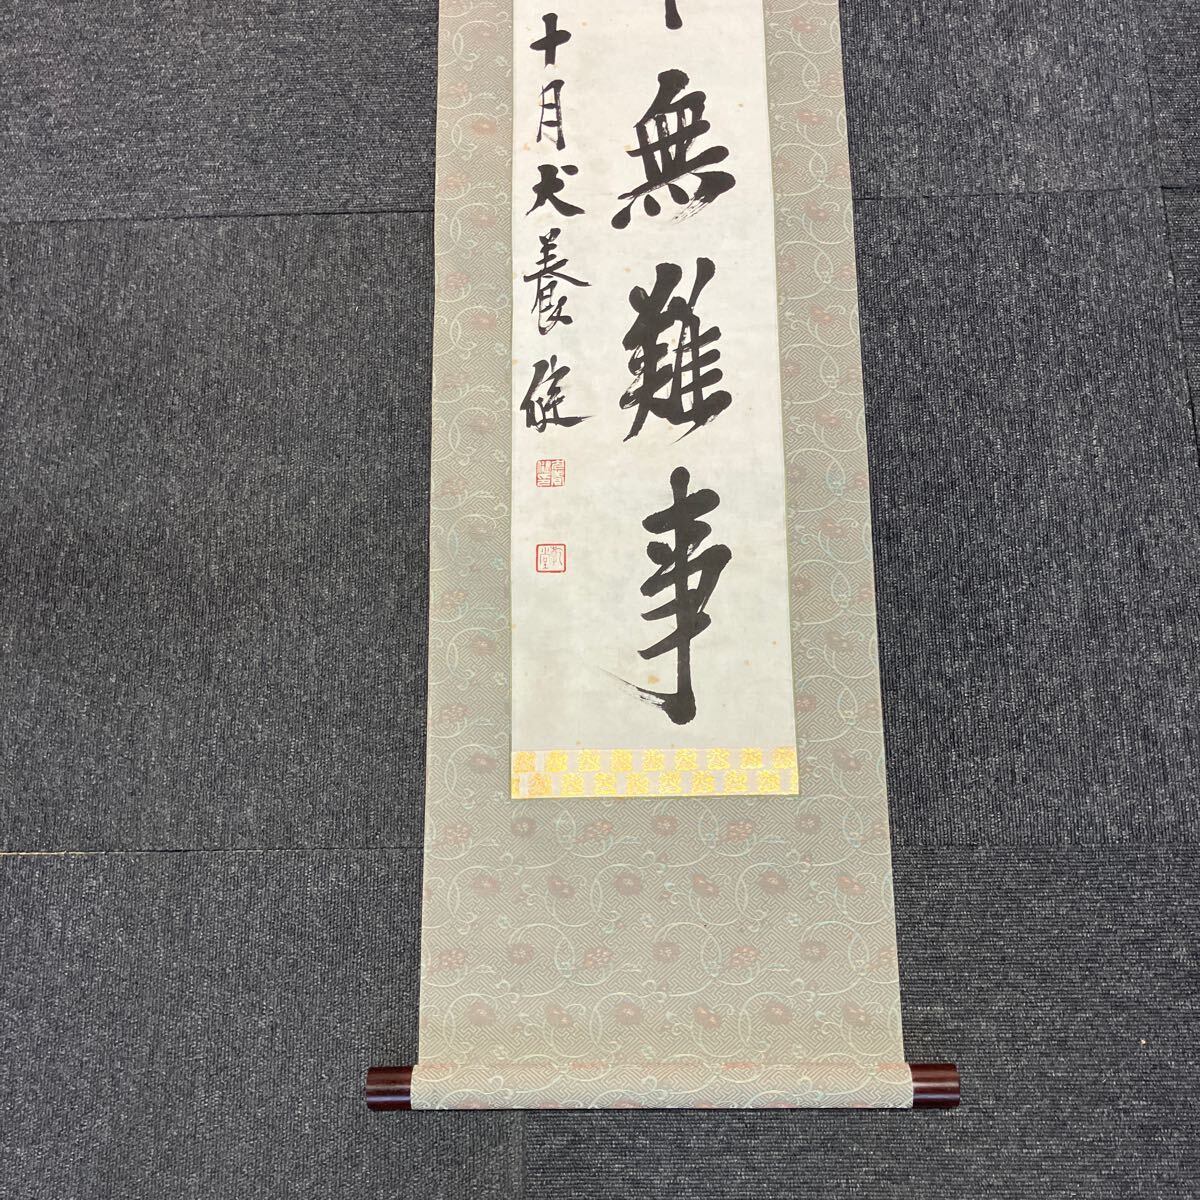 無難事
十月犬養健